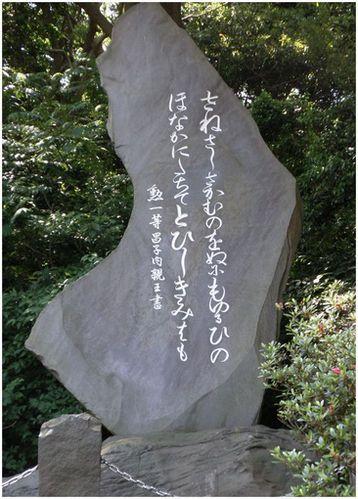 さねさしさかむのをぬにもゆるひの
ほなかにたちてとひしきみはも
勲一等昌子内親王書